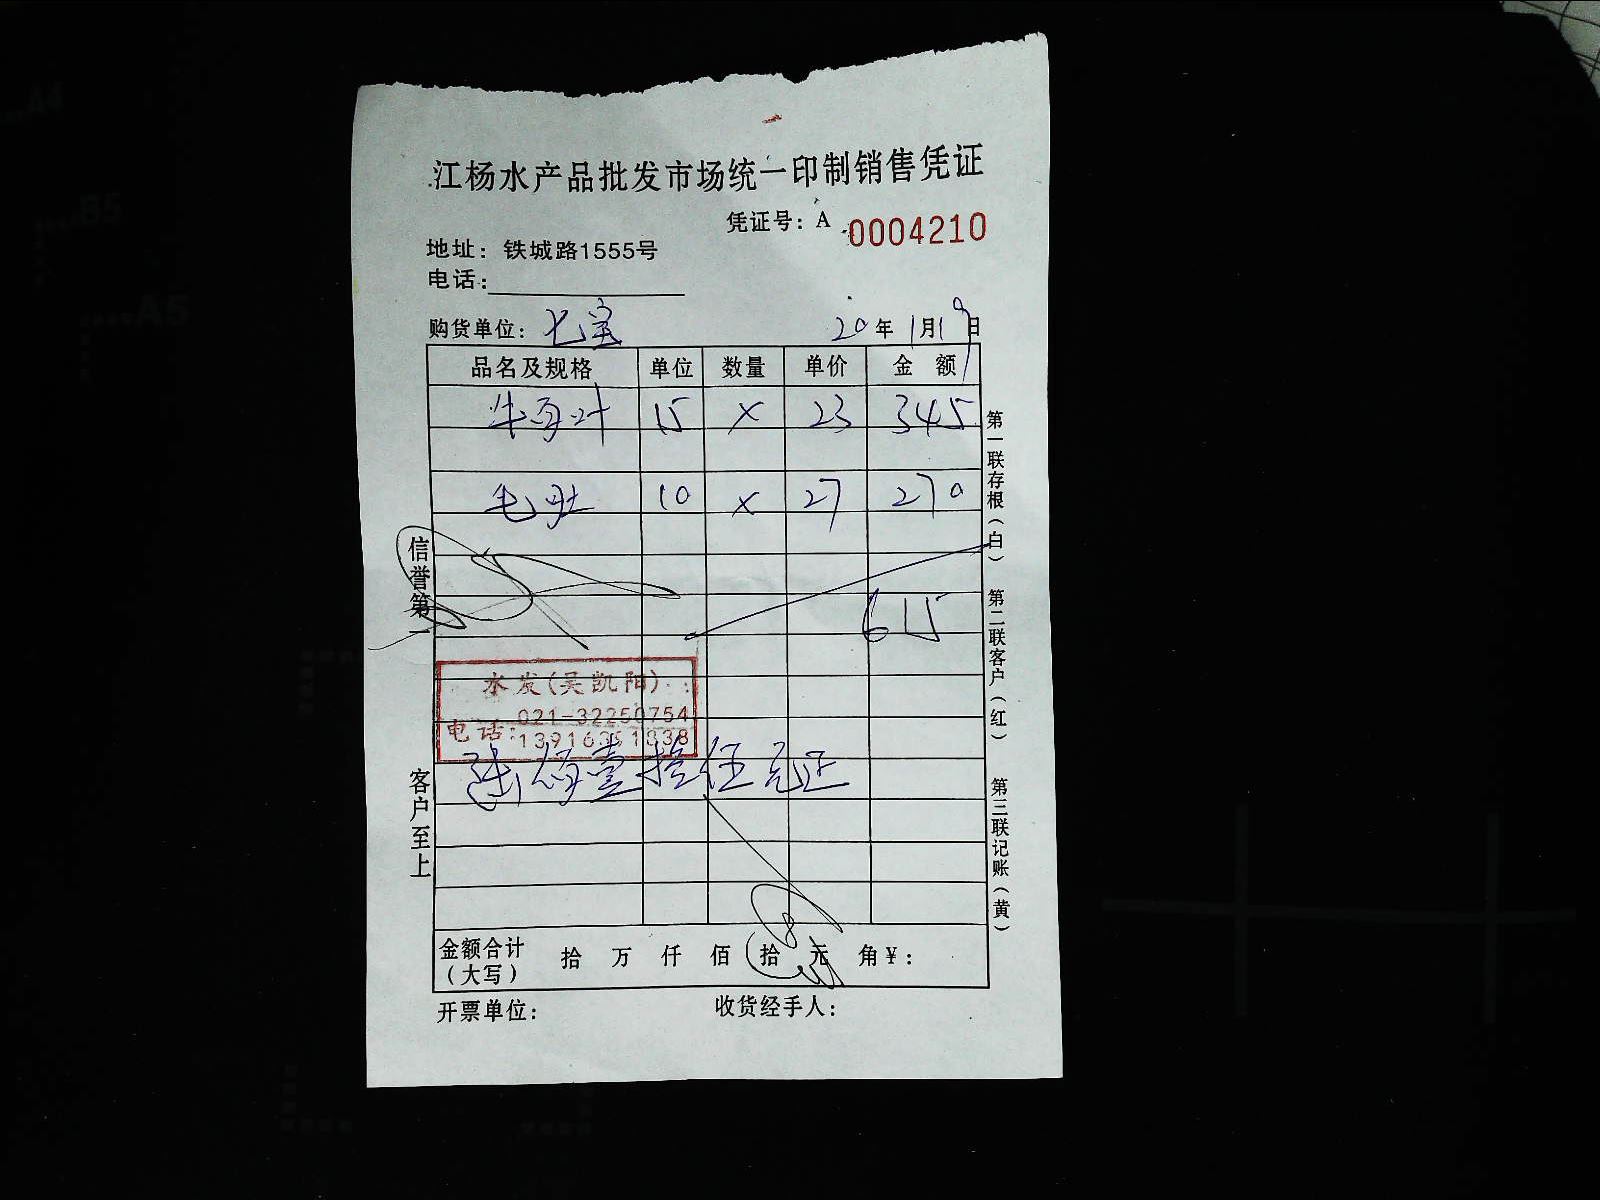 江杨水产品批发市场统一印制销售凭证
凭证号：A 0004210
地址：铁城路1555号
电话：
购货单位：七宝 20年1月19日
品名及规格 单位 数量 单价 金额
牛百叶 15 × 23 345
毛肚 10 × 27 270
615
水发(吴凯阳)
电话：021-32250754
13916351338
金额合计（大写） 拾 万 仟 佰 拾 元 角 ￥：
开票单位： 收货经手人：
信誉第一
客户至上
第一联存根（白） 第二联客户（红） 第三联记账（黄）